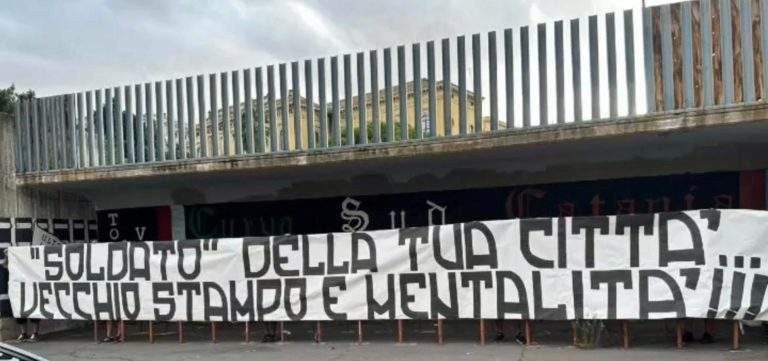 TO V
Curva Sud Catania
"SOLDATO" DELLA TUA CITTA'
VECCHIO STAMPO E MENTALITA'!!!